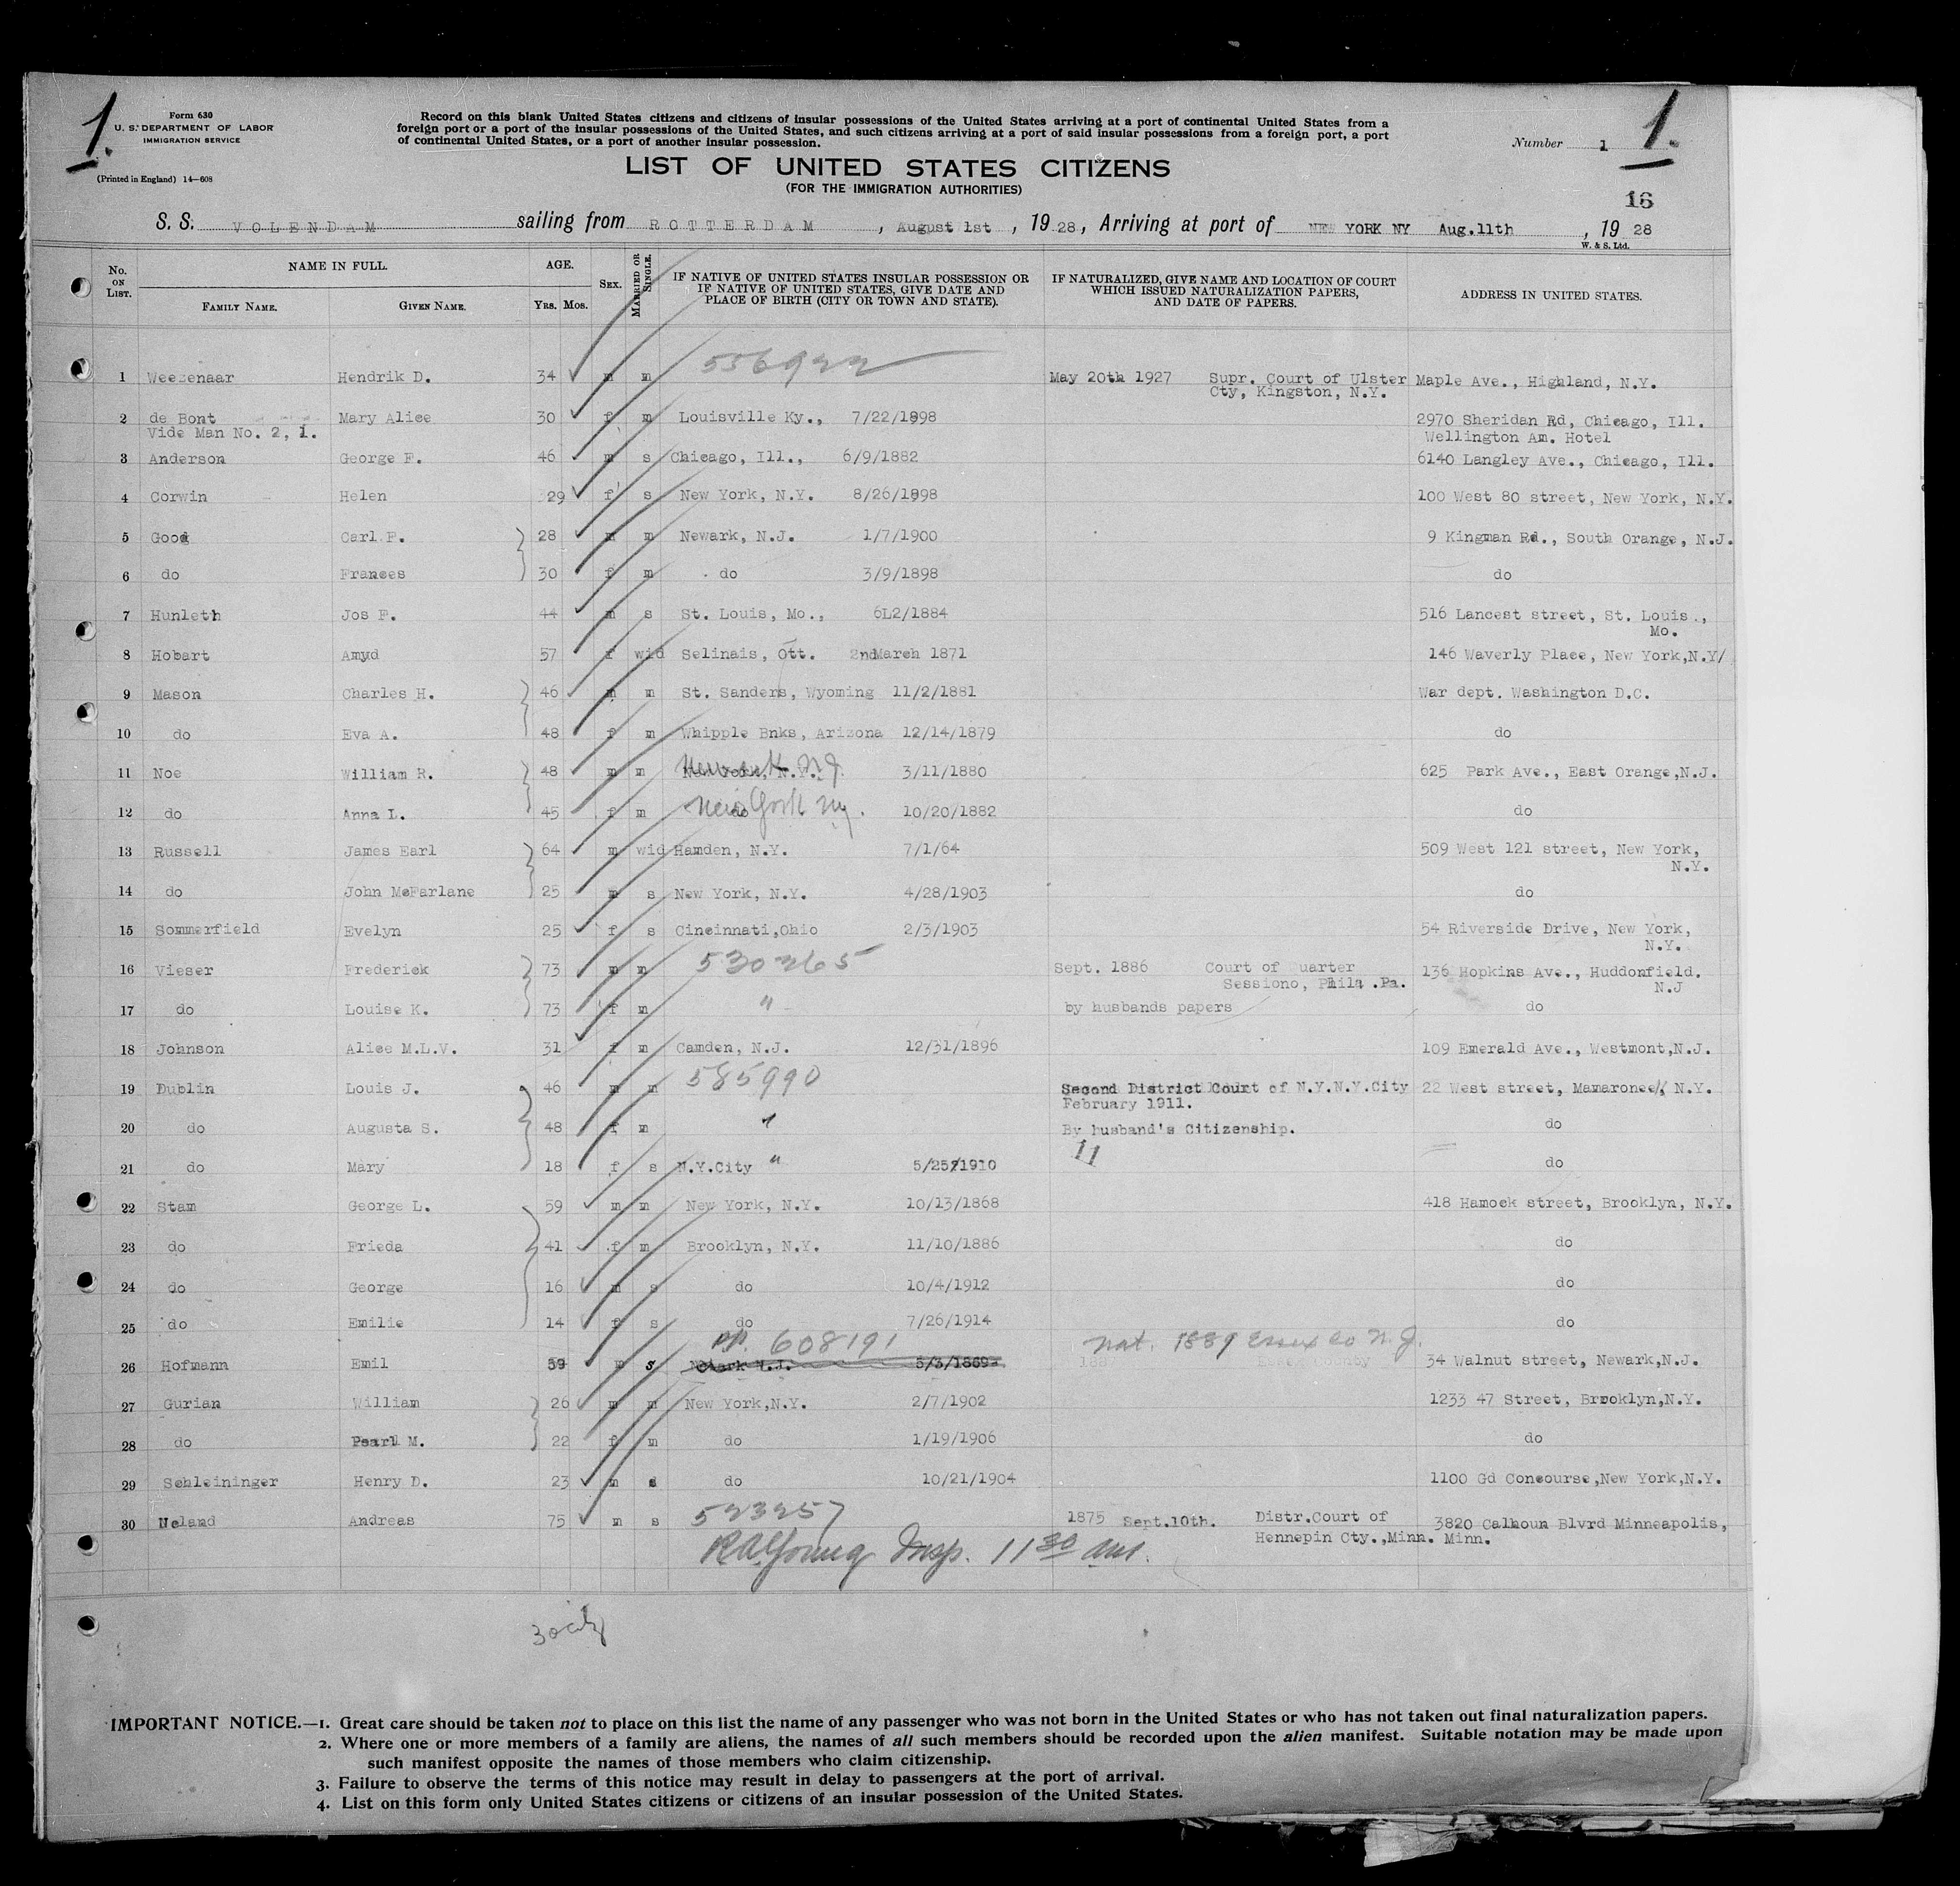 1.
Form 630
U. S. DEPARTMENT OF LABOR
IMMIGRATION SERVICE
(Printed in England) 14—608
Record on this blank United States citizens and citizens of insular possessions of the United States arriving at a port of continental United States from a
foreign port or a port of the insular possessions of the United States, and such citizens arriving at a port of said insular possessions from a foreign port, a port
of continental United States, or a port of another insular possession.
Number 1
1.
LIST OF UNITED STATES CITIZENS
(FOR THE IMMIGRATION AUTHORITIES)
16
S. S. VOLENDAM sailing from ROTTERDAM, August 1st, 1928, Arriving at port of NEW YORK NY Aug.11th, 1928
W. & S. Ltd.
No. ON LIST. NAME IN FULL. FAMILY NAME. GIVEN NAME. AGE. YRS. MOS. SEX. MARRIED OR SINGLE. IF NATIVE OF UNITED STATES INSULAR POSSESSION OR IF NATIVE OF UNITED STATES, GIVE DATE AND PLACE OF BIRTH (CITY OR TOWN AND STATE). IF NATURALIZED, GIVE NAME AND LOCATION OF COURT WHICH ISSUED NATURALIZATION PAPERS, AND DATE OF PAPERS. ADDRESS IN UNITED STATES.
556922
1 Weezenaar Hendrik D. 34 m m May 20th 1927 Supr. Court of Ulster Maple Ave., Highland, N.Y.
Cty, Kingston, N.Y.
2 de Bont Mary Alice 30 f m Louisville Ky., 7/22/1898 2970 Sheridan Rd, Chicago, Ill.
Vide Man No. 2, 1. Wellington Am. Hotel
3 Anderson George F. 46 m s Chicago, Ill., 6/9/1882 6140 Langley Ave., Chicago, Ill.
4 Corwin Helen 29 f s New York, N.Y. 8/26/1898 100 West 80 street, New York, N.Y.
5 Goog Carl F. 28 m m Newark, N.J. 1/7/1900 9 Kingman Rd., South Orange, N.J.
6 do Frances 30 f m do 3/9/1898 do
7 Hunleth Jos F. 44 m s St. Louis, Mo., 6L2/1884 516 Lancest street, St. Louis.,
Mo.
8 Hobart Amyd 57 f wid Selinais, Ott. 2ndMarch 1871 146 Waverly Place, New York,N.Y/
9 Mason Charles H. 46 m m St. Sanders, Wyoming 11/2/1881 War dept. Washington D.C.
10 do Eva A. 48 f m Whipple Bnks, Arizona 12/14/1879 do
11 Noe William R. 48 m m Newark N.J. 3/11/1880 625 Park Ave., East Orange,N.J.
12 do Anna L. 45 f m do New York NY. 10/20/1882 do
13 Russell James Earl 64 m wid Hamden, N.Y. 7/1/64 509 West 121 street, New York,
N.Y.
14 do John McFarlane 25 m s New York, N.Y. 4/28/1903 do
15 Sommerfield Evelyn 25 f s Cincinnati,Ohio 2/3/1903 54 Riverside Drive, New York,
N.Y.
16 Vieser Frederick 73 m m 530265 Sept. 1886 Court of Quarter 136 Hopkins Ave., Huddonfield.
Sessiono, Phila .Pa. N.J
17 do Louise K. 73 f m " by husbands papers do
18 Johnson Alice M.L.V. 31 f m Camden, N.J. 12/31/1896 109 Emerald Ave., Westmont,N.J.
585990
19 Dublin Louis J. 46 m m Second District Court of N.Y.N.Y.City 22 West street, Mamaroneck, N.Y.
February 1911.
20 do Augusta S. 48 f m " By husband's Citizenship. do
11
21 do Mary 18 f s N.Y.City " 5/25/1910 do
22 Stam George L. 59 m m New York, N.Y. 10/13/1868 418 Hamock street, Brooklyn, N.Y.
23 do Frieda 41 f m Brooklyn, N.Y. 11/10/1886 do
24 do George 16 m s do 10/4/1912 do
25 do Emilie 14 f s do 7/26/1914 do
pp. 608191 Nat. 1889 Essex Co N.J.
26 Hofmann Emil 59 m s Newark N.J. 5/3/1869 34 Walnut street, Newark,N.J.
27 Gurian William 26 m m New York,N.Y. 2/7/1902 1233 47 Street, Brooklyn,N.Y.
28 do Pearl M. 22 f m do 1/19/1906 do
29 Schleininger Henry D. 23 m s do 10/21/1904 1100 Gd Concourse,New York,N.Y.
30 Ueland Andreas 75 m s 523257 1875 Sept.10th. Distr.Court of 3820 Calhoun Blvrd Minneapolis,
Hennepin Cty.,Minn. Minn.
RA Young Insp. 11 30 am.
30 cits
IMPORTANT NOTICE.—1. Great care should be taken not to place on this list the name of any passenger who was not born in the United States or who has not taken out final naturalization papers.
2. Where one or more members of a family are aliens, the names of all such members should be recorded upon the alien manifest. Suitable notation may be made upon
such manifest opposite the names of those members who claim citizenship.
3. Failure to observe the terms of this notice may result in delay to passengers at the port of arrival.
4. List on this form only United States citizens or citizens of an insular possession of the United States.